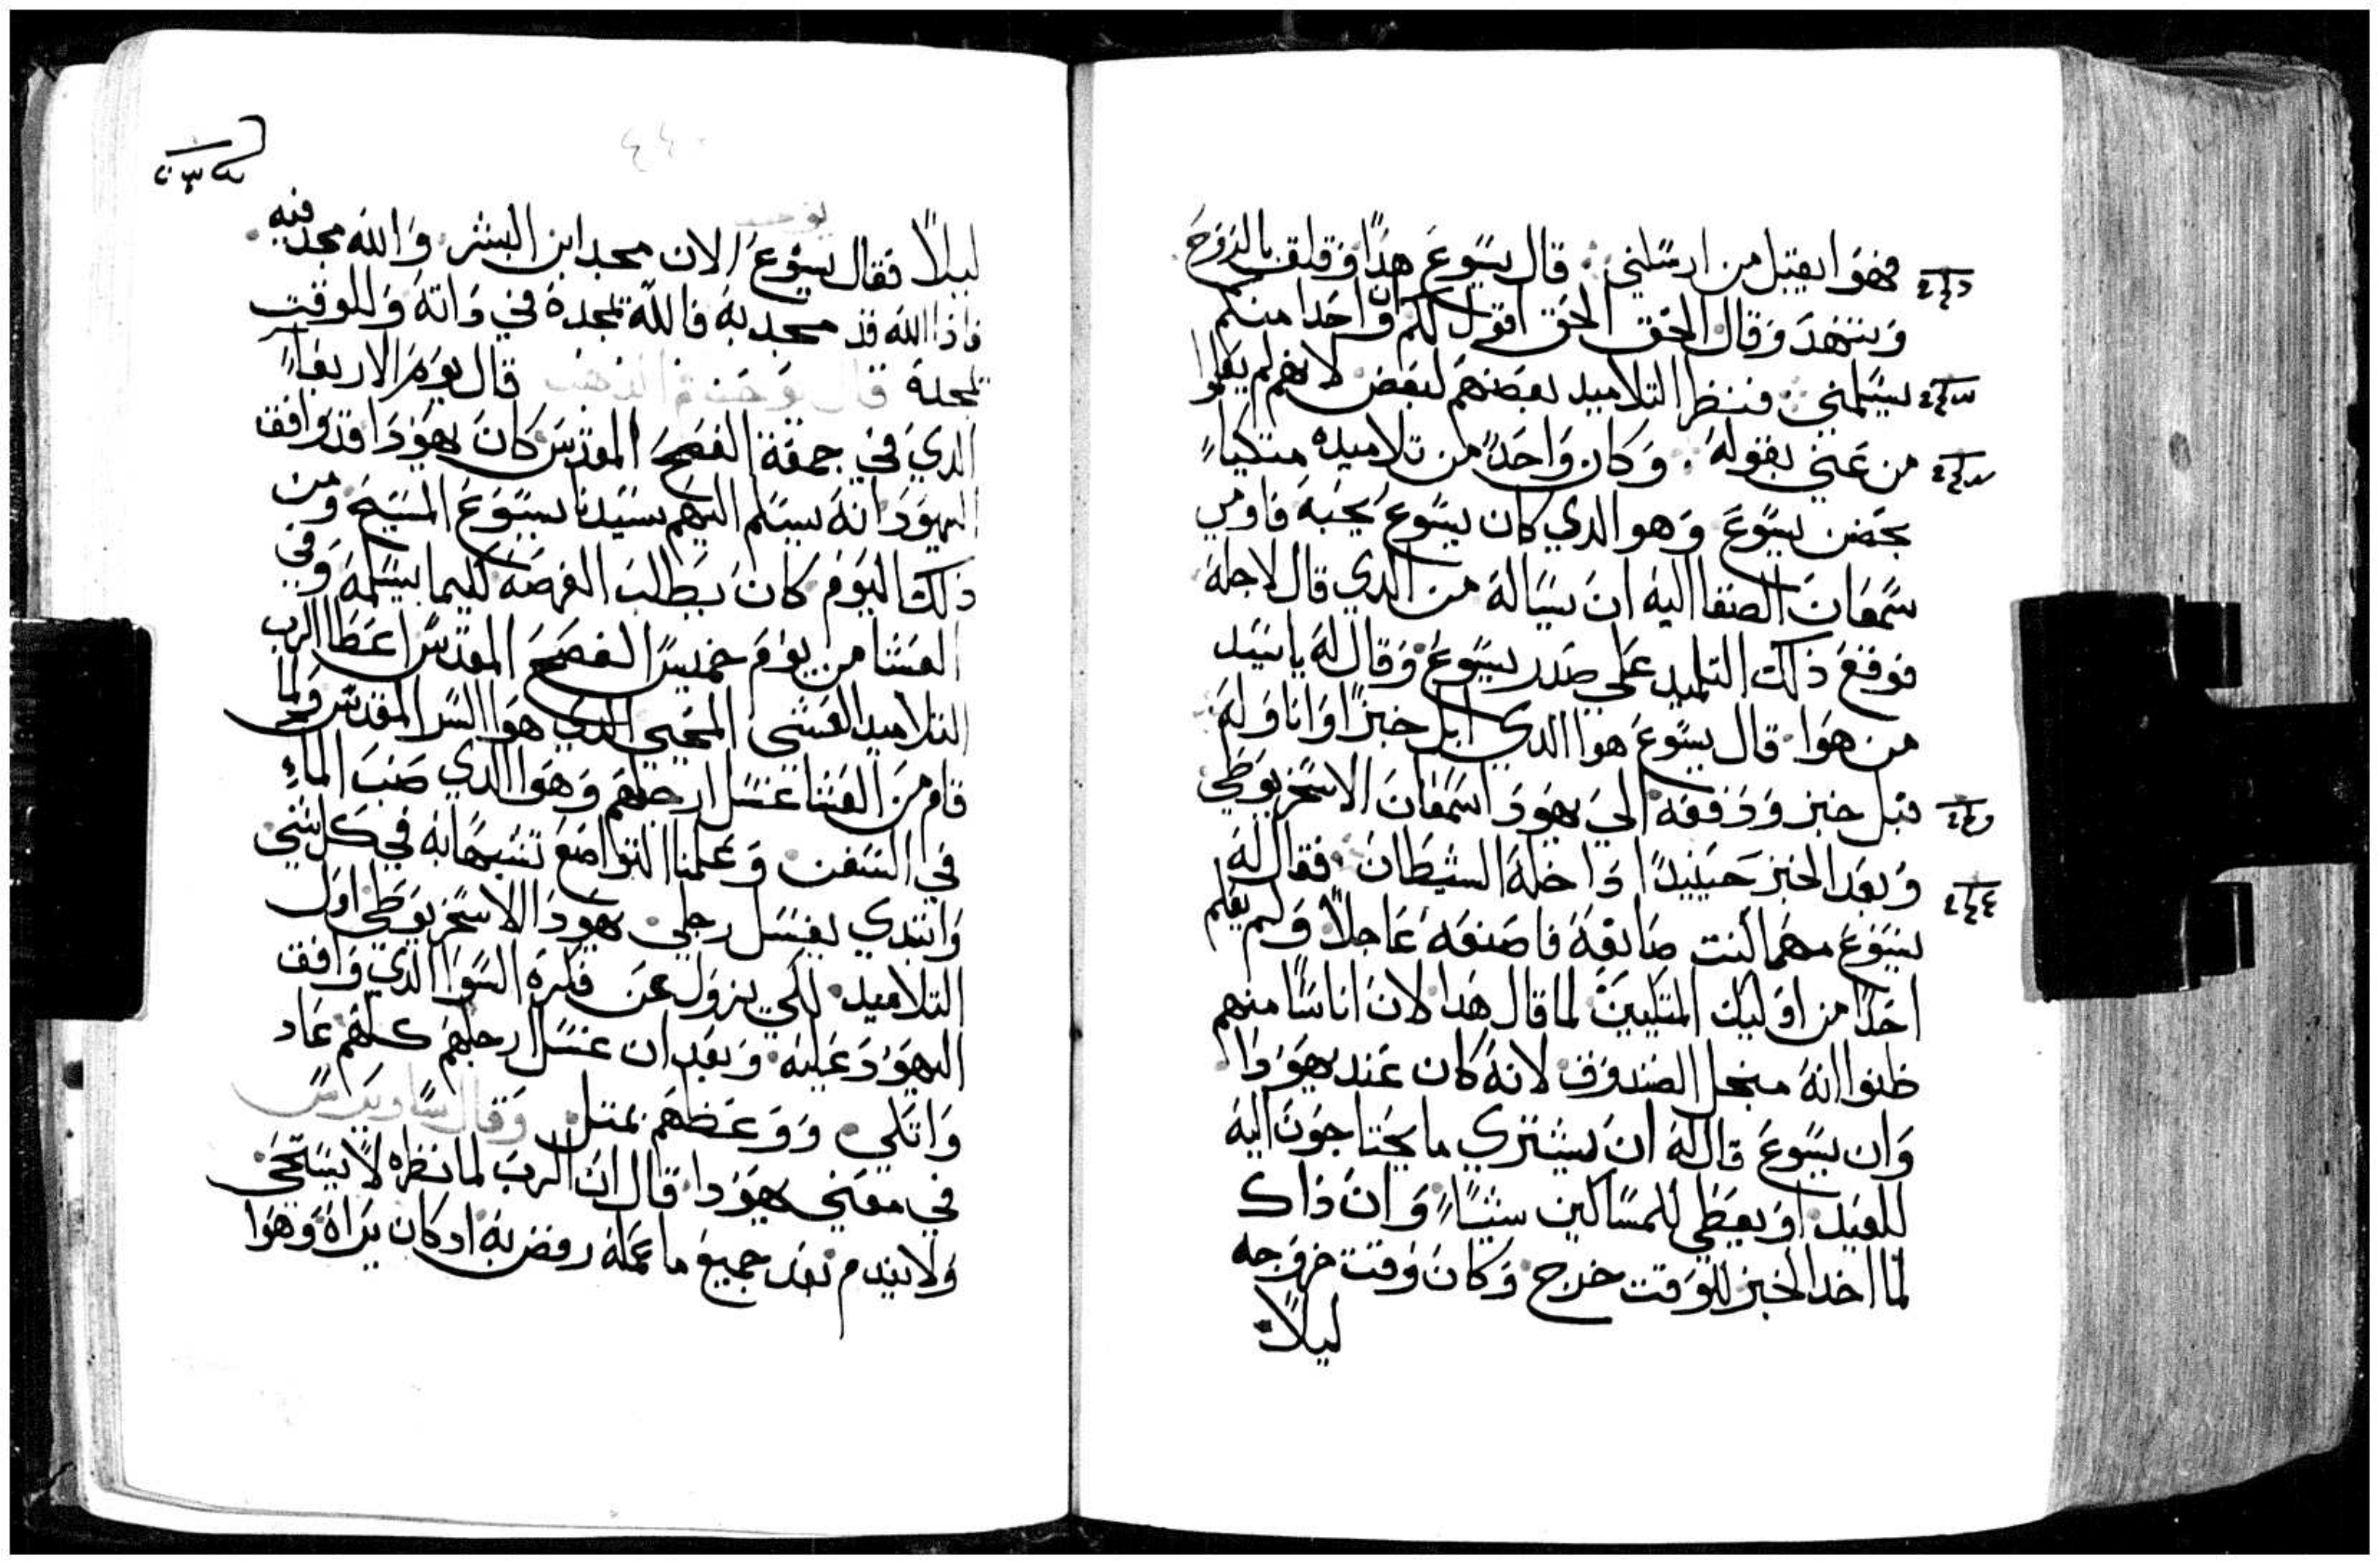 فهوا يقبل من ارسلني قال يسوع هدا وقلق بالروح
وتنهد وقال الحق الحق اقول لكم ان واحدا منكم
يسلمني فنظر التلاميد بعضهم لبعض لانهم لم يعلموا
من عني بقوله وكان واحدا من تلاميده متكياء
بحضن يسوع وهو الدي كان يسوع يحبه فاومى
سمعان الصفا اليه ان يساله من الدي قال لاجله
فوقع ذلك التلميد على صدر يسوع وقال له يا سيد
من هوا قال يسوع هوا الدي ابل خبزا وانا وله
فبل خبز ودفعه الى يهودا سمعان الاسخريوطي
وبعد الخبز حينيدا داخله الشيطان فقال له
يسوع مهما انت صانعه فاصنعه عاجلا ولم يعلم
احدا من اوليك المتكيين لما قال هدا لان اناسا منهم
ظنوا انه من اجل الصندوق لانه كان عند يهودا
وان يسوع قال له ان يشتري ما يحتاجون اليه
للعيد او يعطي للمساكين شياء وان ذاك
لما اخد الخبز للوقت خرج وكان وقت خروجه
ليلا
٤٤٠
ليلا فقال يسوع الان مجد ابن البشر والله مجد فيه
فاذا الله قد مجد به فالله يمجده في داته وللوقت
يمجده قال يوحنا فم الدهب قال يوم الاربعاء
الدي في جمعة الفصح المقدس كان يهودا قد وافق
اليهود انه يسلم اليهم سيدنا يسوع المسيح ومن
ذلك اليوم كان يطلب الفرصه كيما يسلمه وفي
العشا من يوم خميس الفصح المقدس اعطا الرب
التلاميد العشى المحيي الدي هو السر المقدس ولما
قام من العشا غسل ارجلهم وهوا الدي صب الماء
في السفن وعلمنا التواضع تشبها به في كل شي
وابتدي يغسل رجلي يهودا الاسخريوطي اول
التلاميد لكي يزول عن فكره السوا الدي وافق
اليهود عليه وبعد ان غسل ارجلهم كلهم عاد
واتكي ووعظهم بمتل وقال ساويرس
في معنى يهودا قال ان الرب لما نظره لا يستحى
ولا يندم بعد جميع ما عمله رفض به اد كان يراه وهوا